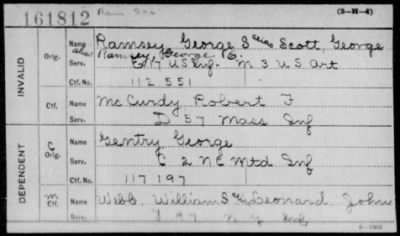 161812
(3-H-4)
INVALID
DEPENDENT
Orig. Name Ramsey, George S alias Scott, George
alias Ramsey George
Serv. 17 U S Inf. M 3 U S Art
Ctf. No. 112 551
Ctf. McCurdy Robert F
D 57 Mass Inf
C Orig. Name Gentry George
Serv. C 2 N C Mtd Inf
Ctf. No. 117 197
Ctf. Name Webb, William S alias Leonard, John
Serv. 97 N Y Inf